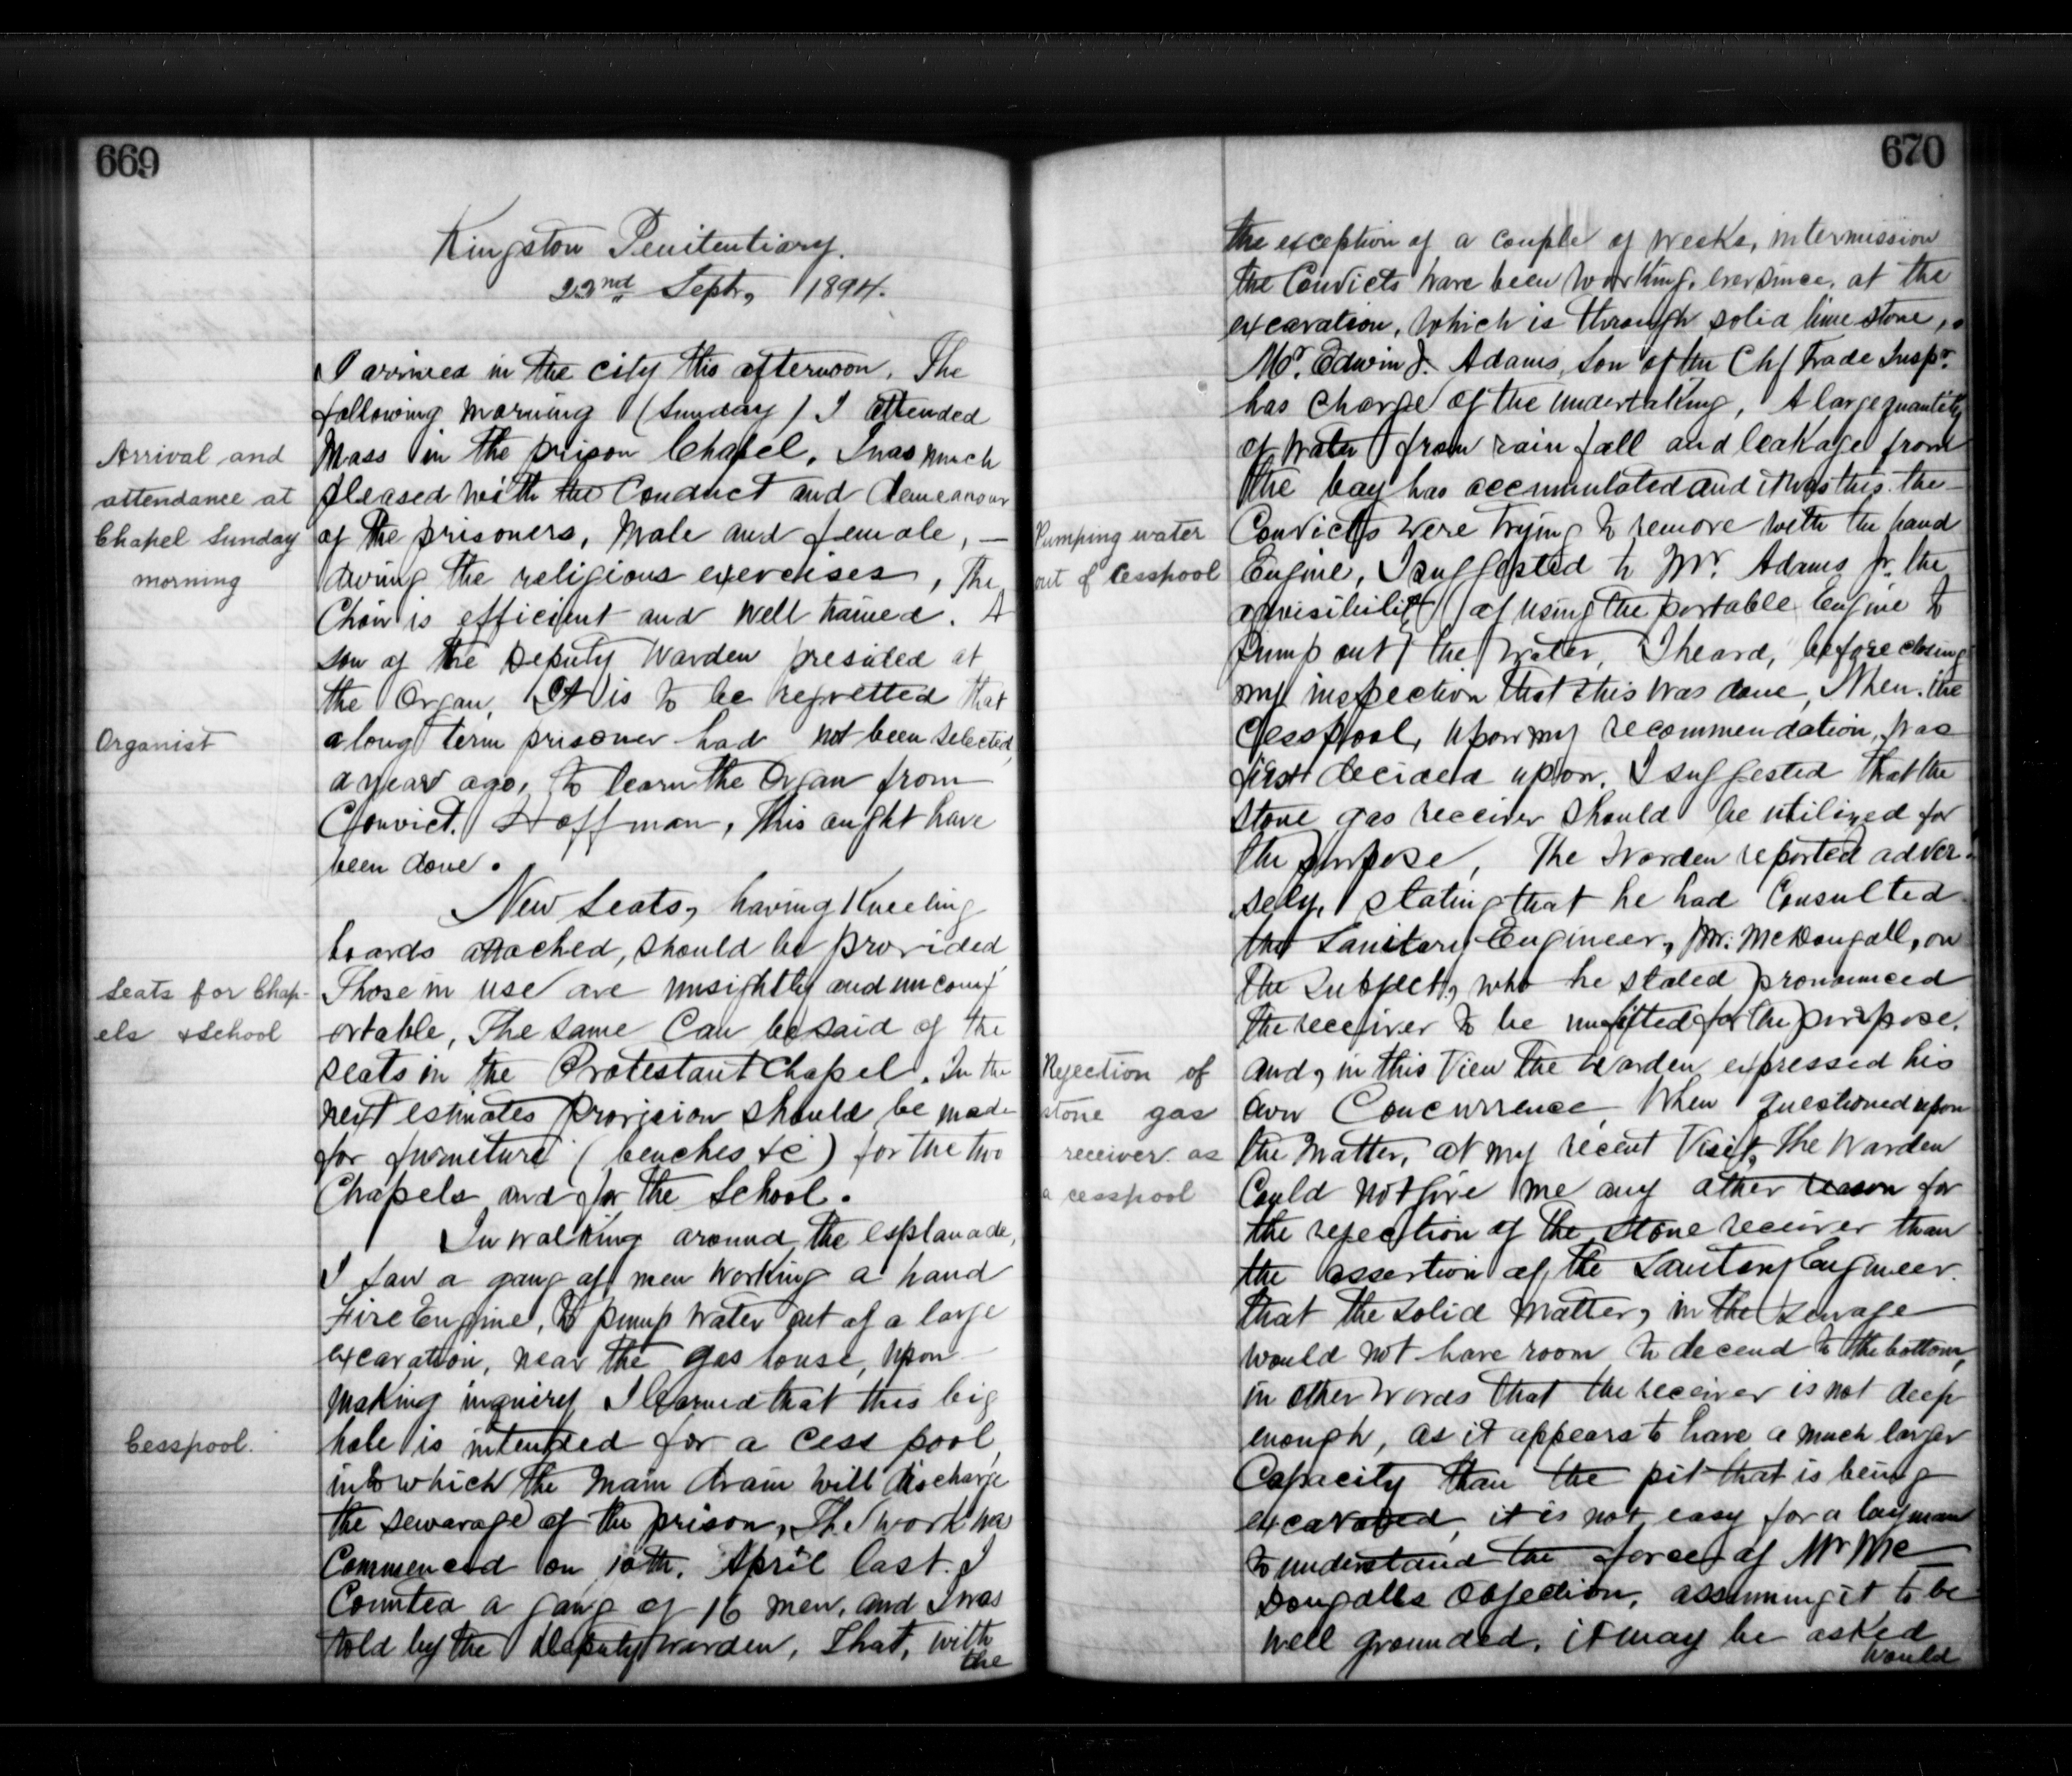 669
Kingston Penitentiary.
22nd Sept, 1894.
I arrived in the city this afternoon. The
following morning (Sunday) I attended
Arrival and
attendance at
Chapel Sunday
morning
Mass in the prison Chapel. I was much
pleased with the Conduct and demeanour
of the prisoners, Male and female, —
during the religious exercises, The
Choir is efficient and well trained. A
son of the Deputy Warden presided at
the Organ. It is to be regretted that
Organist
a long term prisoner had not been selected,
a year ago, to learn the Organ from
Convict. Hoffman, This ought have
been done.
New Seats, having Kneeling
boards attached, should be provided
Seats for Chap-
els & School
Those in use are unsightly and uncomf
ortable, The same Can be said of the
seats in the Protestant Chapel. In the
next estimates provision should be made
for furniture (benches &c) for the two
Chapels and for the School.
In walking around the esplanade,
I saw a gang of men working a hand
Fire Engine, to pump water out of a large
excavation, near the gas house, upon
making inquiry I learned that this big
Cesspool.
hole is intended for a cess pool,
into which the main drain will discharge
the sewarage of the prison, The work was
Commenced on 10th. April last. I
Counted a gang of 16 men, and I was
told by the Deputy Warden, that, with
the
670
the exception of a couple of weeks, intermission
the Convicts have been working, ever since, at the
excavation, which is through solid lime stone,
Mr. Edwin J. Adams, son of the Chf Trade Inspr.
has charge of the undertaking, A large quantity
of water from rain fall and leakage from
the bay has accumulated and it was this the
Pumping water
out of Cesspool
Convicts were trying to remove with the hand
Engine, I suggested to Mr. Adams Jr. the
advisibility of using the portable Engine to
pump out the water, I heard, before closing
my inspection that this was done, When the
Cesspool, upon my recommendation, was
first decided upon, I suggested that the
stone gas receiver should be utilized for
the purpose, The Warden reported adver-
sely, stating that he had Consulted
the Sanitary Engineer, Mr. McDougall, on
the subject, who he stated pronounced
the receiver to be unfitted for the purpose.
Rejection of
stone gas
receiver as
a cesspool
and, in this View the Warden expressed his
own Concurrence, When questioned upon
the Matter, at my recent Visit, the Warden
Could not give me any other reason for
the rejection of the stone receiver than
the assertion of the Sanitary Engineer
that the solid matter, in the sewage
would not have room to decend to the bottom,
in other words that the receiver is not deep
enough, as it appears to have a much larger
Capacity than the pit that is being
excavated, it is not easy for a layman
to understand the force of Mr Mc
Dougalls Objection, assuming it to be
well grounded, it may be asked
would